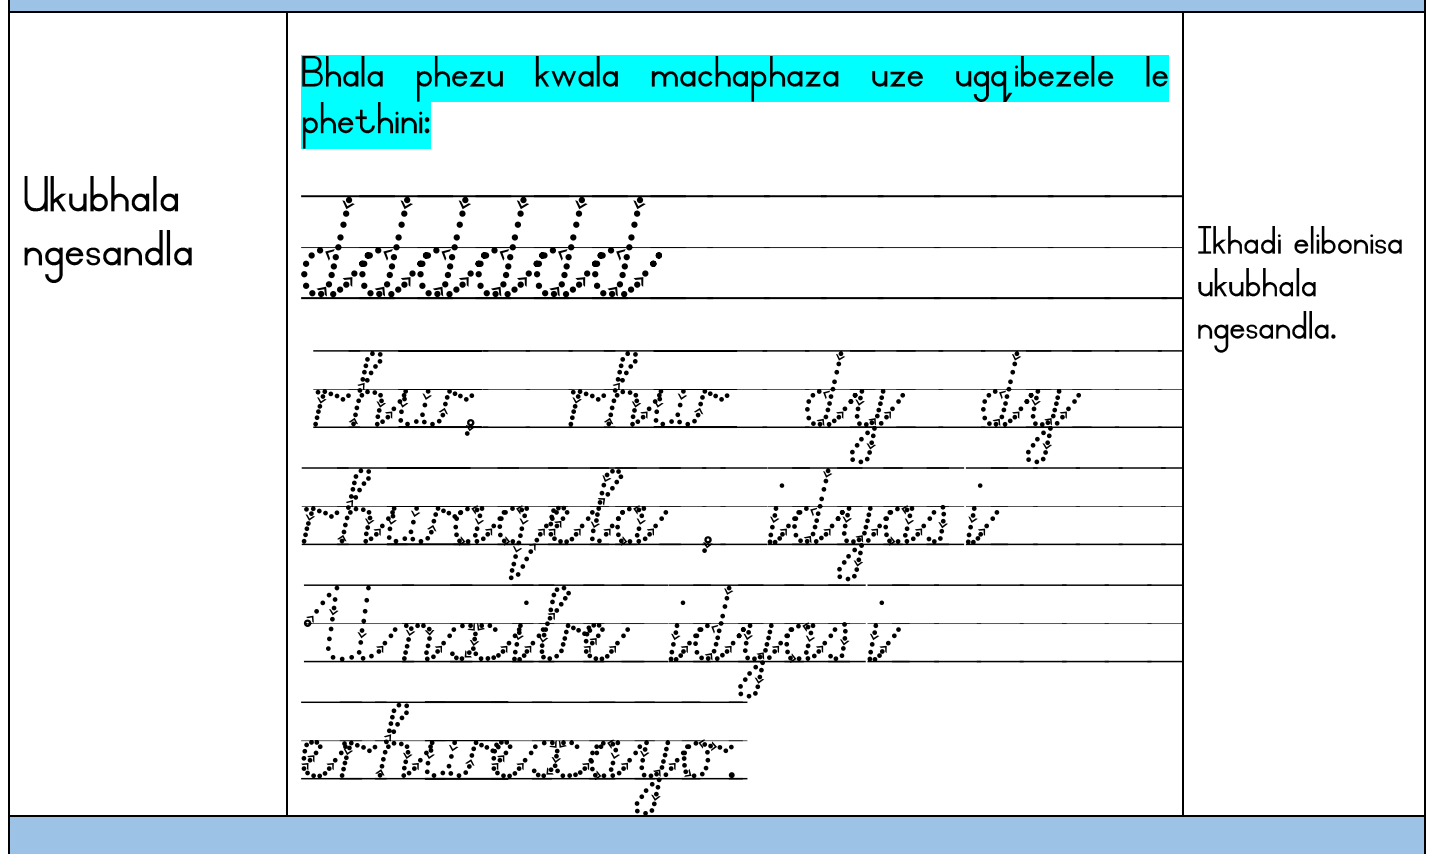 Ukubhala
ngesandla
Bhala phezu kwala machaphaza uze ugqibezele le
phethini:
dddddd
rhw, rhw dy dy
rhwaqela , idyasi
Unxibe idyasi
erhwexayo.
Ikhadi elibonisa
ukubhala
ngesandla.